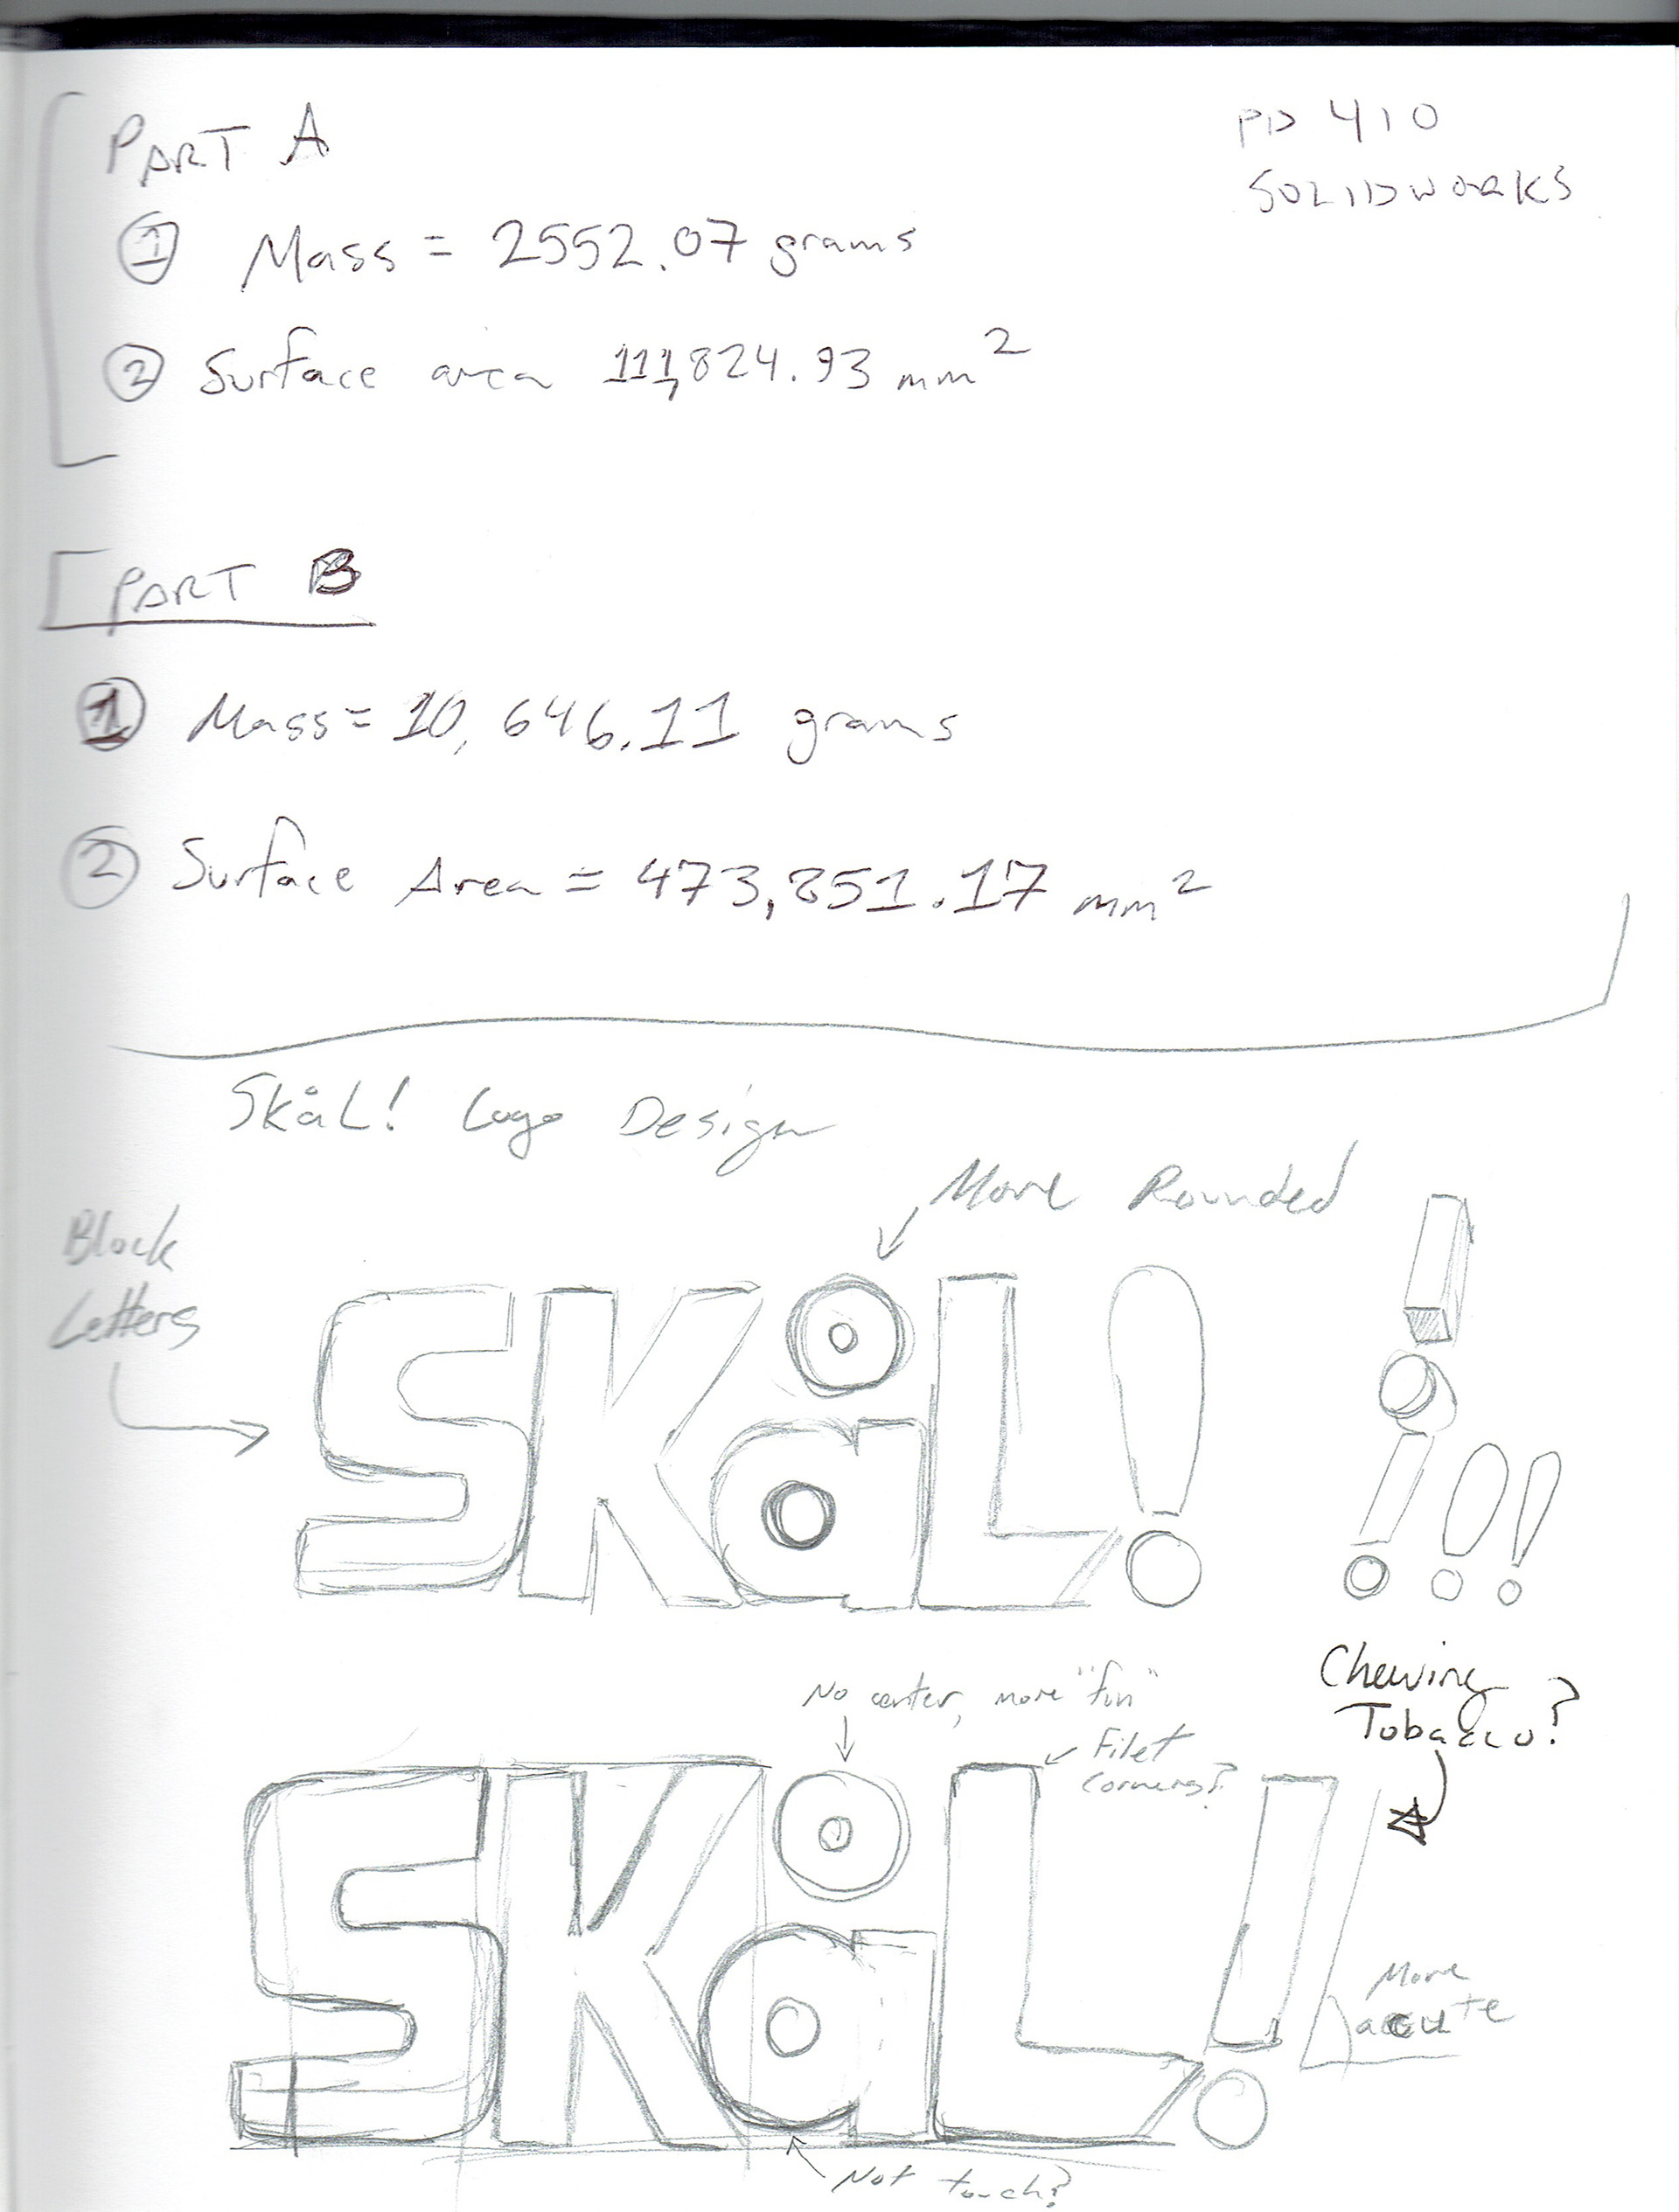 PART A
PD 410
SOLIDWORKS
① Mass = 2552.07 grams
② Surface area 111,824.93 mm²
PART B
① Mass = 10,646.11 grams
② Surface Area = 473,851.17 mm²
SkåL! Logo Design
More Rounded
Block
Letters
SKåL!
!
! ! !
No center, more "fun"
Chewing
Tobacco?
Filet
corners?
SKåL!
More
acute
Not touch?